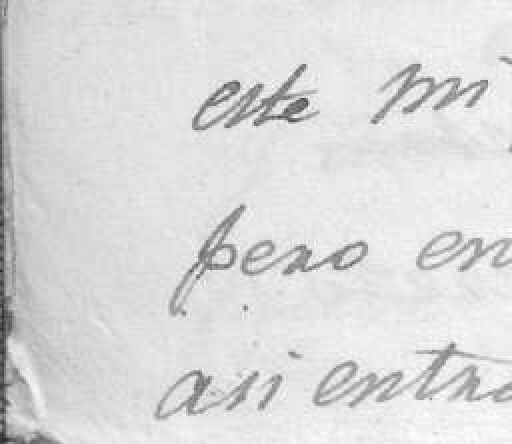 este mi
pero en
asi entra